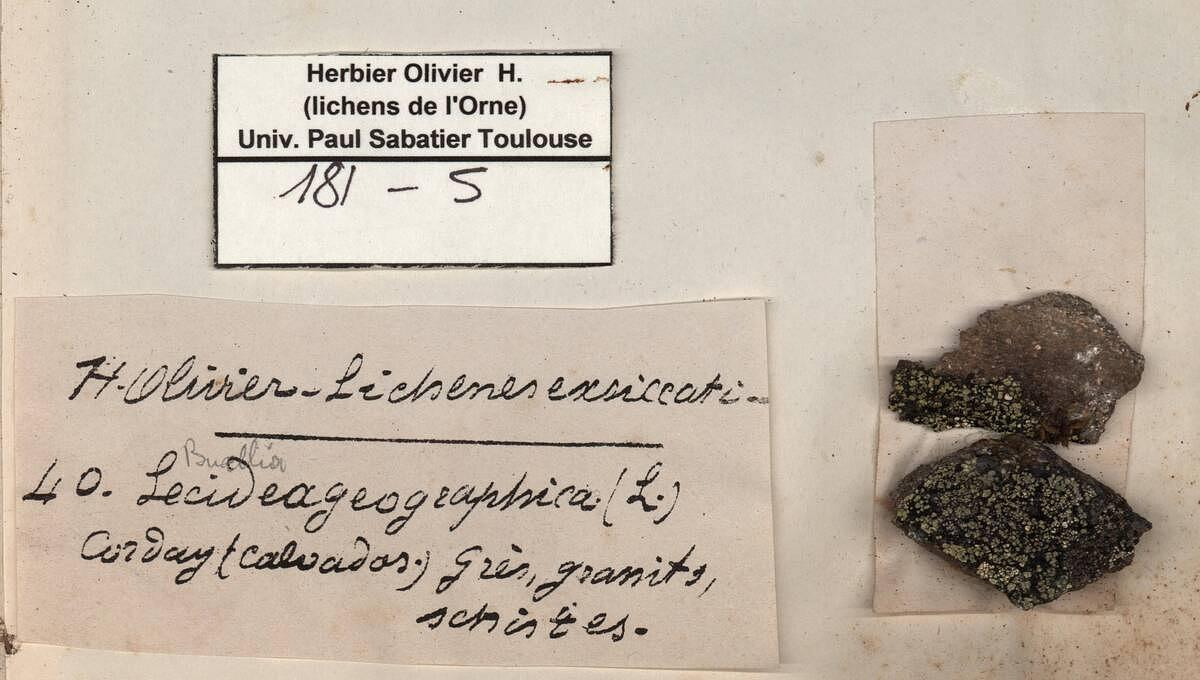 Herbier Olivier H.
(lichens de l'Orne)
Univ. Paul Sabatier Toulouse
181 - 5
H. Olivier - Lichenes exsiccati -
Buellia
40. Lecidea geographica (L.)
Corday (Calvados.) Grès, granits,
schistes.